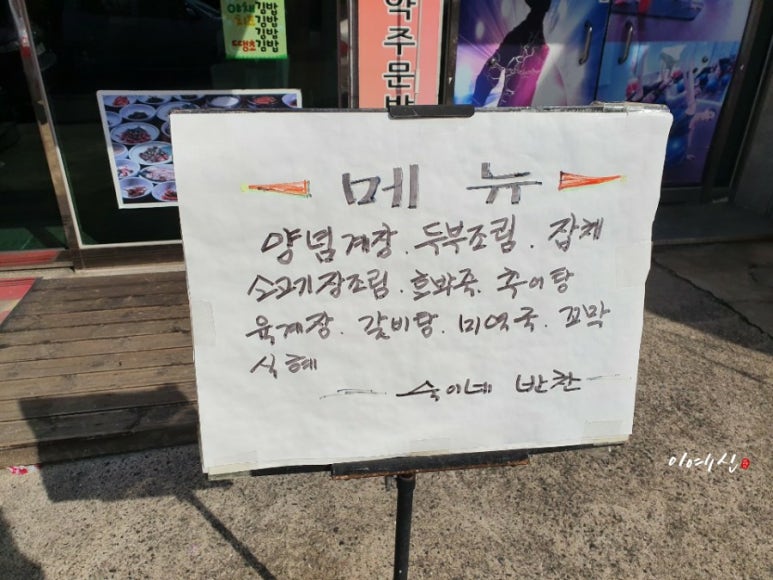 야채김밥
치즈김밥
김밥
땡초김밥
약주문받
메뉴
양념게장. 두부조림. 잡체
소고기장조림. 호박죽. 추어탕
육게장. 갈비탕. 미역국. 꼬막
식혜
숙이네 반찬
이예신